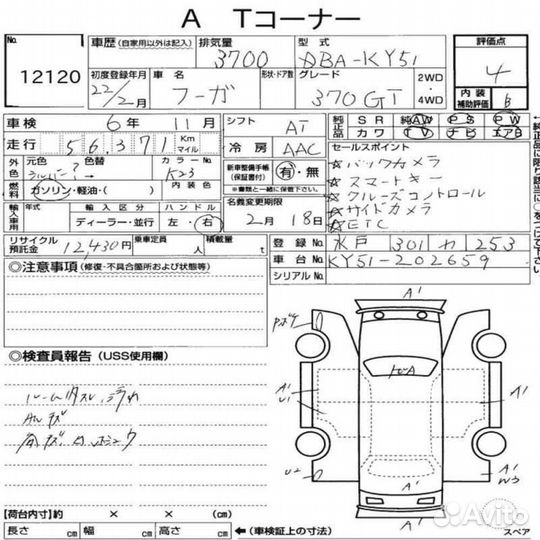 A Tコーナー
No. 12120
車歴 (自家用以外は記入) 排気量 3700 型式 DBA-KY51
評価点 4
初度登録年月 22/2月 車名 フーガ 形状・ドア数 グレード 370GT 2WD ・ 4WD
内装補助評価 B
車検 6年 11月 シフト AT 純正品 SR AW PS PW
カワ TV ナビ エアB
走行 56,371 Km マイル 冷房 AAC セールスポイント
外色 元色 シルバー? → 色替 カラーNo. K23 新車整備手帳 (保証書付) 有・無
※書類と一緒に保管下さい。
☆バックカメラ
☆スマートキー
☆クルーズコントロール
☆サイドカメラ
☆ETC
燃料 ガソリン・軽油・( ) 内装色
輸入車用 年式 輸入区分 ディーラー・並行 ハンドル 左・右 名義変更期限 2月 18日
リサイクル預託金 12,430円 乗車定員 人 積載量 t
登録No. 水戸 301 カ 253
車台No. KY51-202659
シリアルNo.
◎注意事項 (修復・不具合箇所および状態等)
◎検査員報告 (USS使用欄)
ルーム内スレ、汚れ
AWキズ
【荷台内寸】 × × (cm)
長さ cm 幅 cm 高さ cm ← (車検証上の寸法)
A' A' A' U1 A' U2 A' W3 A'
スペア
Avito